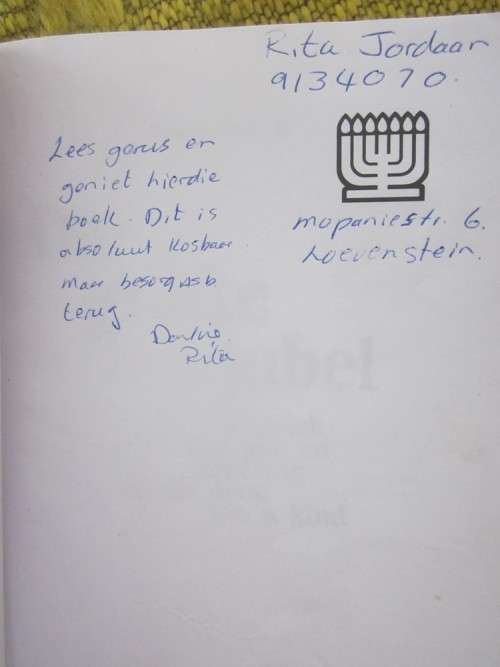 Rita Jordaan
9134070.
mopaniestr. 6.
Loevenstein.
Lees gerus en
geniet hierdie
boek. Dit is
absoluut kosbaar
maar besorg asb
terug.
Dankie.
Rita